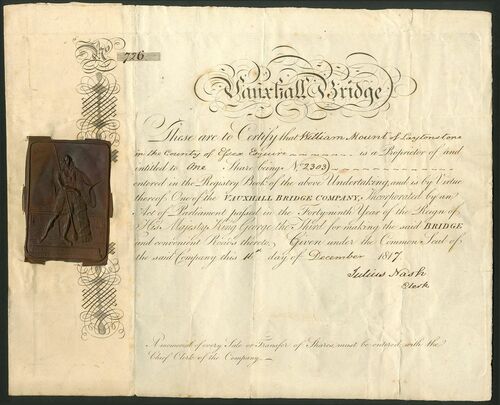 No 726
Vauxhall Bridge
These are to Certify that William Mount of Laytonstone
in the County of Essex Esquire is a Proprietor of and
entitled to One Share being No 2303
entered in the Registry Book of the above Undertaking, and is by Virtue
thereof One of the VAUXHALL BRIDGE COMPANY, Incorporated by an
Act of Parliament passed in the Forty ninth Year of the Reign of
His Majesty King George the Third for making the said BRIDGE
and convenient Roads thereto. Given under the Common Seal of
the said Company this 11th day of December 1817.
Julius Nash
Clerk
A memorial of every Sale or Transfer of Shares must be entered with the
Chief Clerk of the Company.